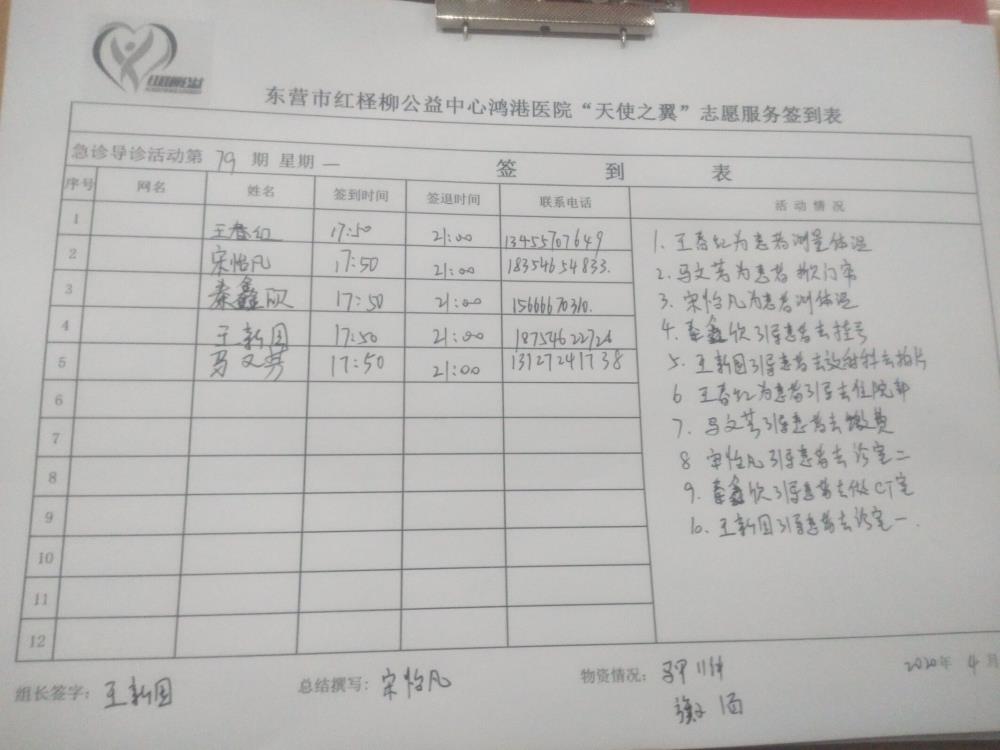 东营市红柽柳公益中心鸿港医院“天使之翼”志愿服务签到表
急诊导诊活动第 79 期 星期 一 签 到 表
序号 网名 姓名 签到时间 签退时间 联系电话 活动情况
1 王春红 17:50 21:00 13455707649
2 宋怡凡 17:50 21:00 18354654833.
3 秦鑫欣 17:50 21:00 15666670310.
4 王新国 17:50 21:00 18754622726
5 马文芳 17:50 21:00 13127241738
6
7
8
9
10
11
12
1. 王春红为患者测量体温
2. 马文芳为患者 门帘
3. 宋怡凡为患者测体温
4. 秦鑫欣引导患者去挂号
5. 王新国引导患者去放射科去拍片
6 王春红为患者引导去住院部
7. 马文芳引导患者去缴费
8 宋怡凡引导患者去诊室二
9. 秦鑫欣引导患者去做CT室
10. 王新国引导患者去诊室一.
组长签字: 王新国 总结撰写: 宋怡凡 物资情况: 马甲 11件 2020年 4月